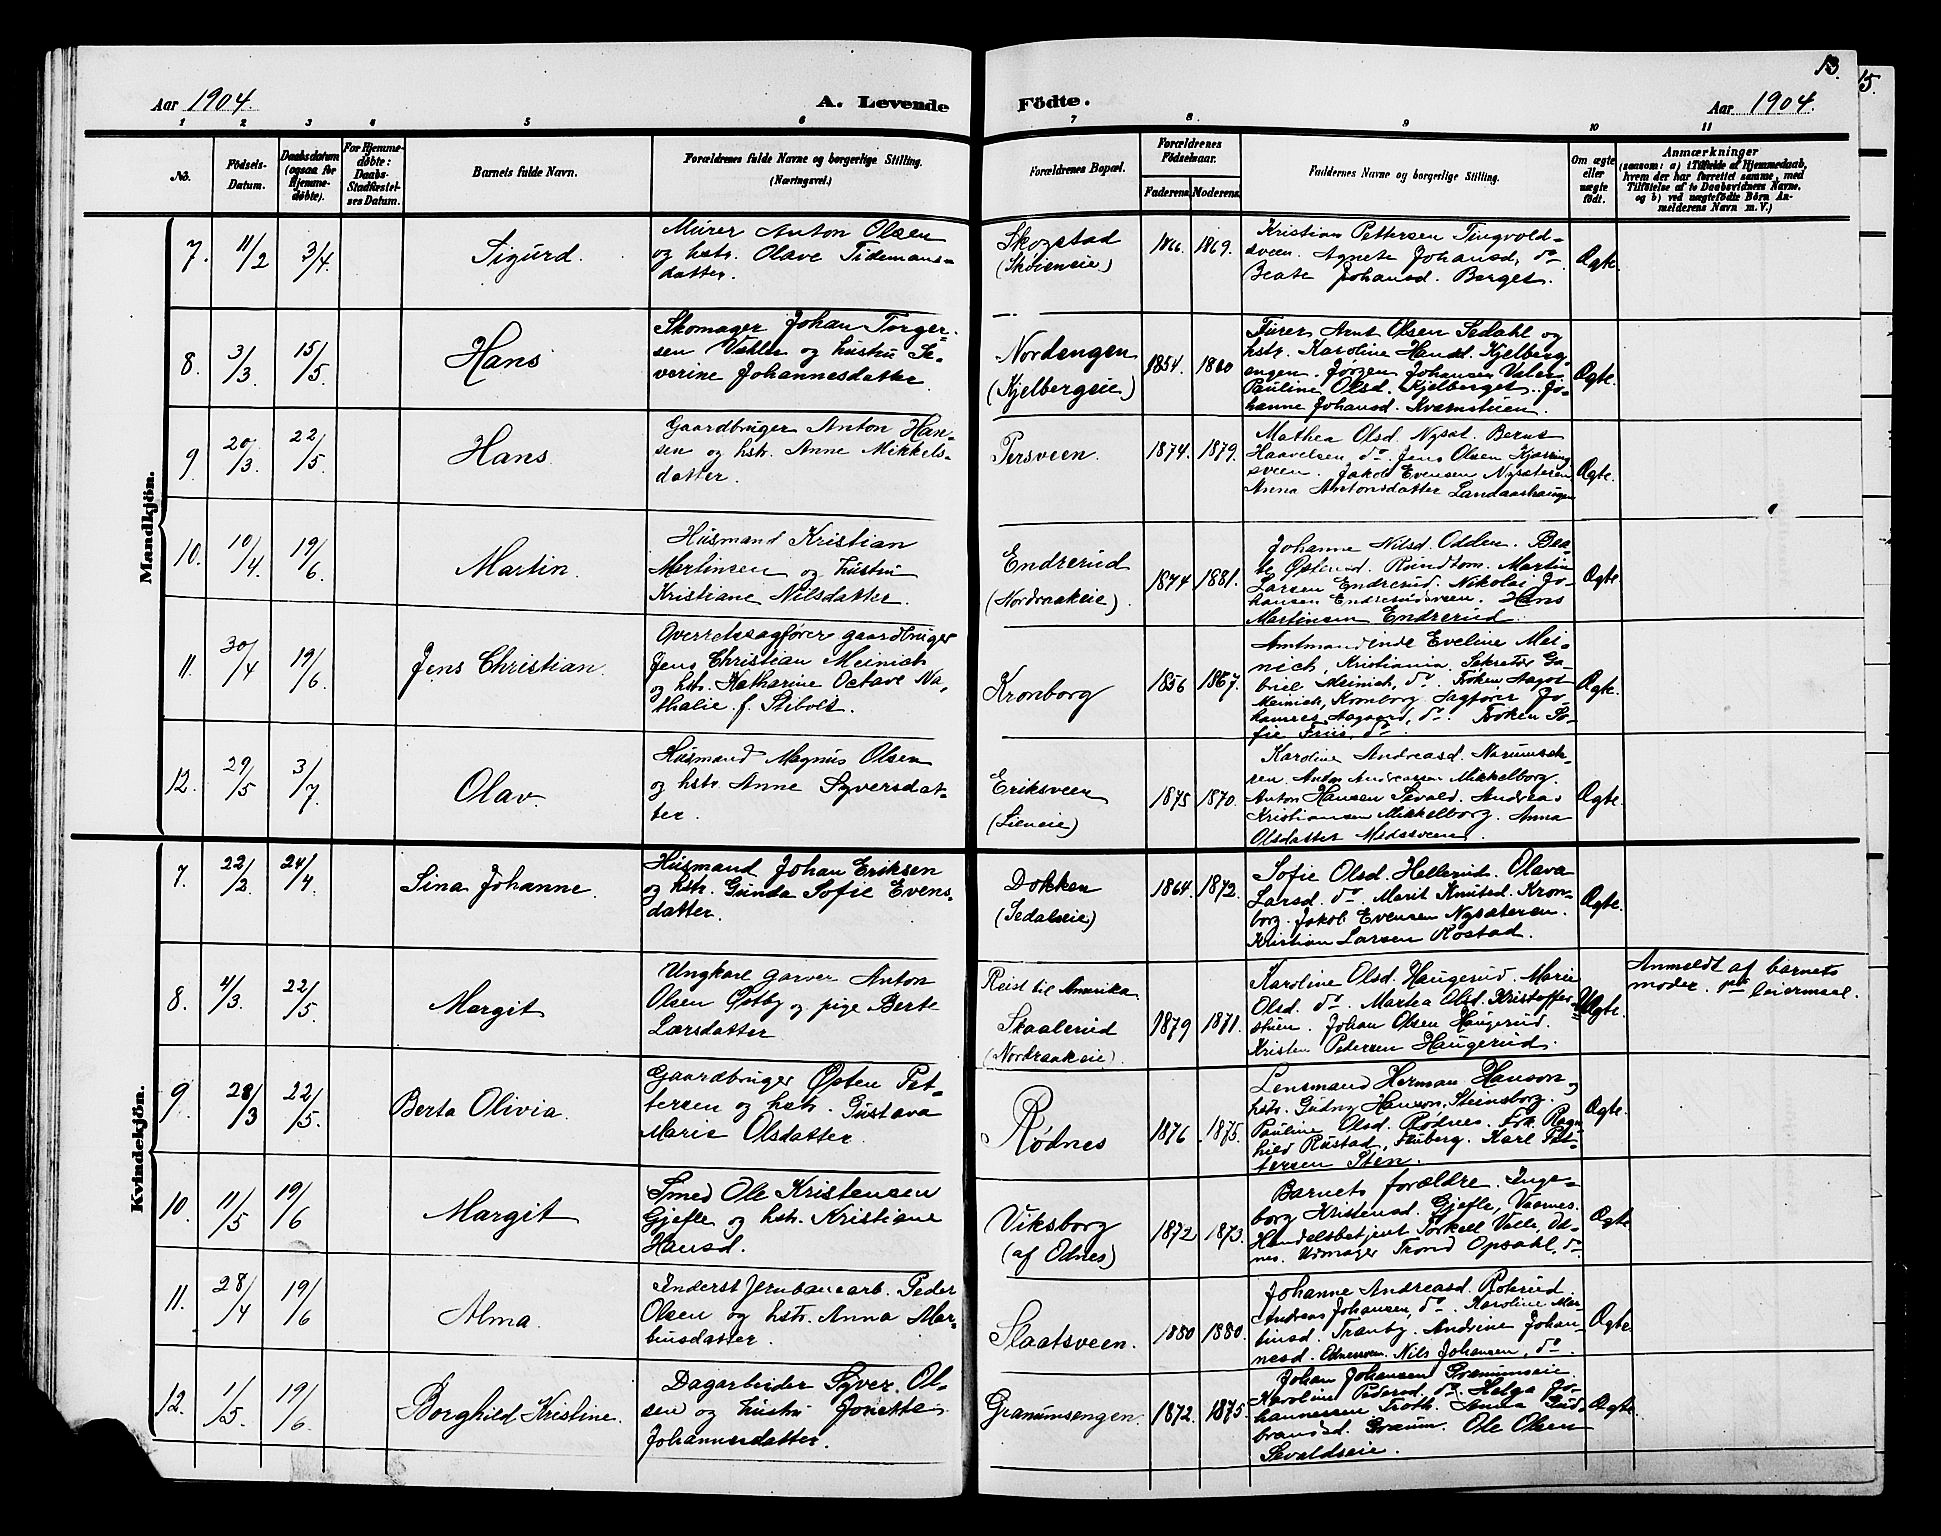 13.
15.
Aar 1904.
A. Levende Födte.
Aar 1904.
1 2 3 4 5 6 7 8. 9 10 11
No.
Födsels-
Datum.
Daabsdatum
(ogsaa for
Hjemme-
døbte).
For Hjemme-
døbte:
Daabs-
Stadfæstel-
ses Datum.
Barnets fulde Navn.
Forældrenes fulde Navne og borgerlige Stilling.
(Næringsvei.)
Forældrenes Bopæl.
Forældrenes
Födselsaar.
Faderens. Moderens.
Faddernes Navne og borgerlige Stilling.
Om ægte
eller
uægte
født.
Anmærkninger
(saasom: a) i Tilfælde af Hjemmedaab,
hvem der har forrettet samme, med
Tilføielse af to Daabsvidners Navne,
og b) ved uægtefødte Börn An-
melderens Navn m. V.)
Mandkjön.
7. 11/2 3/4. Sigurd.
Murer Anton Olsen
og hstr. Olave Tidemans-
datter.
Skogstad
(Skøieneie)
1866. 1869.
Kristian Pettersen Tingvold-
sveen. Agnete Johansd. do
Beate Johansd. Berget.
Ægte.
8. 3/3. 15/5. Hans
Skomager Johan Torger-
sen Vahler og hustru Se-
verine Johannesdatter.
Nordengen
(Kjelbergeie)
1854. 1860
Furer Arnt Olsen Sedahl og
hstr. Karoline Hansd. Kjelberg-
engen. Jørgen Johansen Valer
Pauline Olsd. Kjelberget. Jo-
hanne Johansd. Kvernstuen.
Ægte.
9 20/3. 22/5. Hans
Gaardbruger Anton Han-
sen og hstr. Anne Mikkels-
datter.
Persveen.
1874. 1879.
Mathea Olsd. Nysæt. Bernt
Haavelsen, do. Jens Olsen
sveen. Jakob Evensen Nysæteren
Anna Antonsdatter Landaashaugen
Ægte.
10. 10/4. 19/6. Martin.
Husmand Kristian
Martinsen og hustru
Kristiane Nilsdatter.
Endrerud
(Nordraakeie).
1874 1881.
Johanne Nilsd. Odden. Bea-
te Østensd. Rundtom. Martin
Larsen Endrerud. Nikolai Jo-
hansen Endrerudsveen. Hans
Martinsen Endrerud.
Ægte
11. 30/4 19/6. Jens Christian.
Overretssagfører gaardbruger
Jens Christian Meinich
og hstr. Katharine Octave Na-
thalie f. Stibolt.
Kronborg
1856 1867.
Amtmandinde Eveline Mei-
nich, Kristiania. Sekretær Ga-
briel Meinich, do. Frøken Aagot
Meinich, Kronborg. Sagfører Jo-
hannes Aagaard, do. Frøken So-
fie Friis, do.
Ægte.
12. 29/5 3/7. Olav.
Husmand Magnus Olsen
og hstr. Anne Syversdat-
ter.
Eriksveen
(Lieneie)
1875 1870.
Karoline Andreasd. Narumsek-
ren. Anton Andreassen Mikkelborg.
Anton Hansen Sevald. Andreas
Kristiansen Mikkelborg. Anna
Olsdatter Midtsveen.
Ægte.
Kvindekjön.
7. 22/2. 24/4. Sina Johanne.
Husmand Johan Eriksen
og hstr. Gunda Sofie Evens-
datter.
Dokken
(Sedalseie)
1864. 1872.
Sofie Olsd. Hellerud. Olava
Larsd. do. Marit Knutsd. Kron-
borg. Jakob Evensen Nysæteren.
Kristian Larsen Rostad.
Ægte.
8. 4/3. 22/5. Margit
Ungkarl garver Anton
Olsen Østby og pige Berte
Larsdatter
Reist til Amerika
Skaalerud
(Nordraakeie).
1879 1871.
Karoline Olsd. Haugerud. Marie
Olsd. do. Martea Olsd. Kristoffer-
stuen. Johan Olsen Haugerud.
Kristen Pedersen Haugerud.
Uægte.
Anmeldt af barnets
moder. leiermaal.
9. 28/3 22/5. Berta Olivia.
Gaardbruger Østen Pet-
tersen og hstr. Gustava
Marie Olsdatter.
Rødnes
1876 1875.
Lensmand Herman Hanson og
hstr. Gudny Hanson, Steinsborg.
Pauline Olsd. Rødnes. Frk. Ragn-
hild Rustad, Fluberg. Karl Pet-
tersen Sten.
Ægte.
10. 11/5 19/6 Margit
Smed Ole Kristensen
Gjefle og hstr. Kristiane
Hansd.
Viksborg
(af Odnes)
1872 1873.
Barnets forældre. Inge-
borg Kristensd. Gjefle, Vaarnes.
Handelsbetjent Torkell Valle, Od-
nes. Urmager Trond Opsahl, do
Ægte
11. 28/4 19/6 Alma.
Inderst Jernbanearb. Peder
Olsen og hstr. Anna Mar-
tinusdatter.
Slaatsveen.
1880 1880.
Johanne Andreasd. Roterud.
Andreas Johansen, do. Karoline Mar-
tinsd. Tranby. Andrine Johan-
nesd. Odnessveen. Nils Johansen, do.
Ægte.
12. 1/5 19/6 Borghild Kristine.
Dagarbeider Syver Ol-
sen og hustru Jonette
Johannesdatter.
Granumsengen.
1872. 1875.
Johan Johansen Granumseie.
Karoline Pedersd. do. Helga Jo-
hannessen Troth. Anna Gud-
brandsd. Granum. Ole Olsen
Sevaldseie.
Ægte.